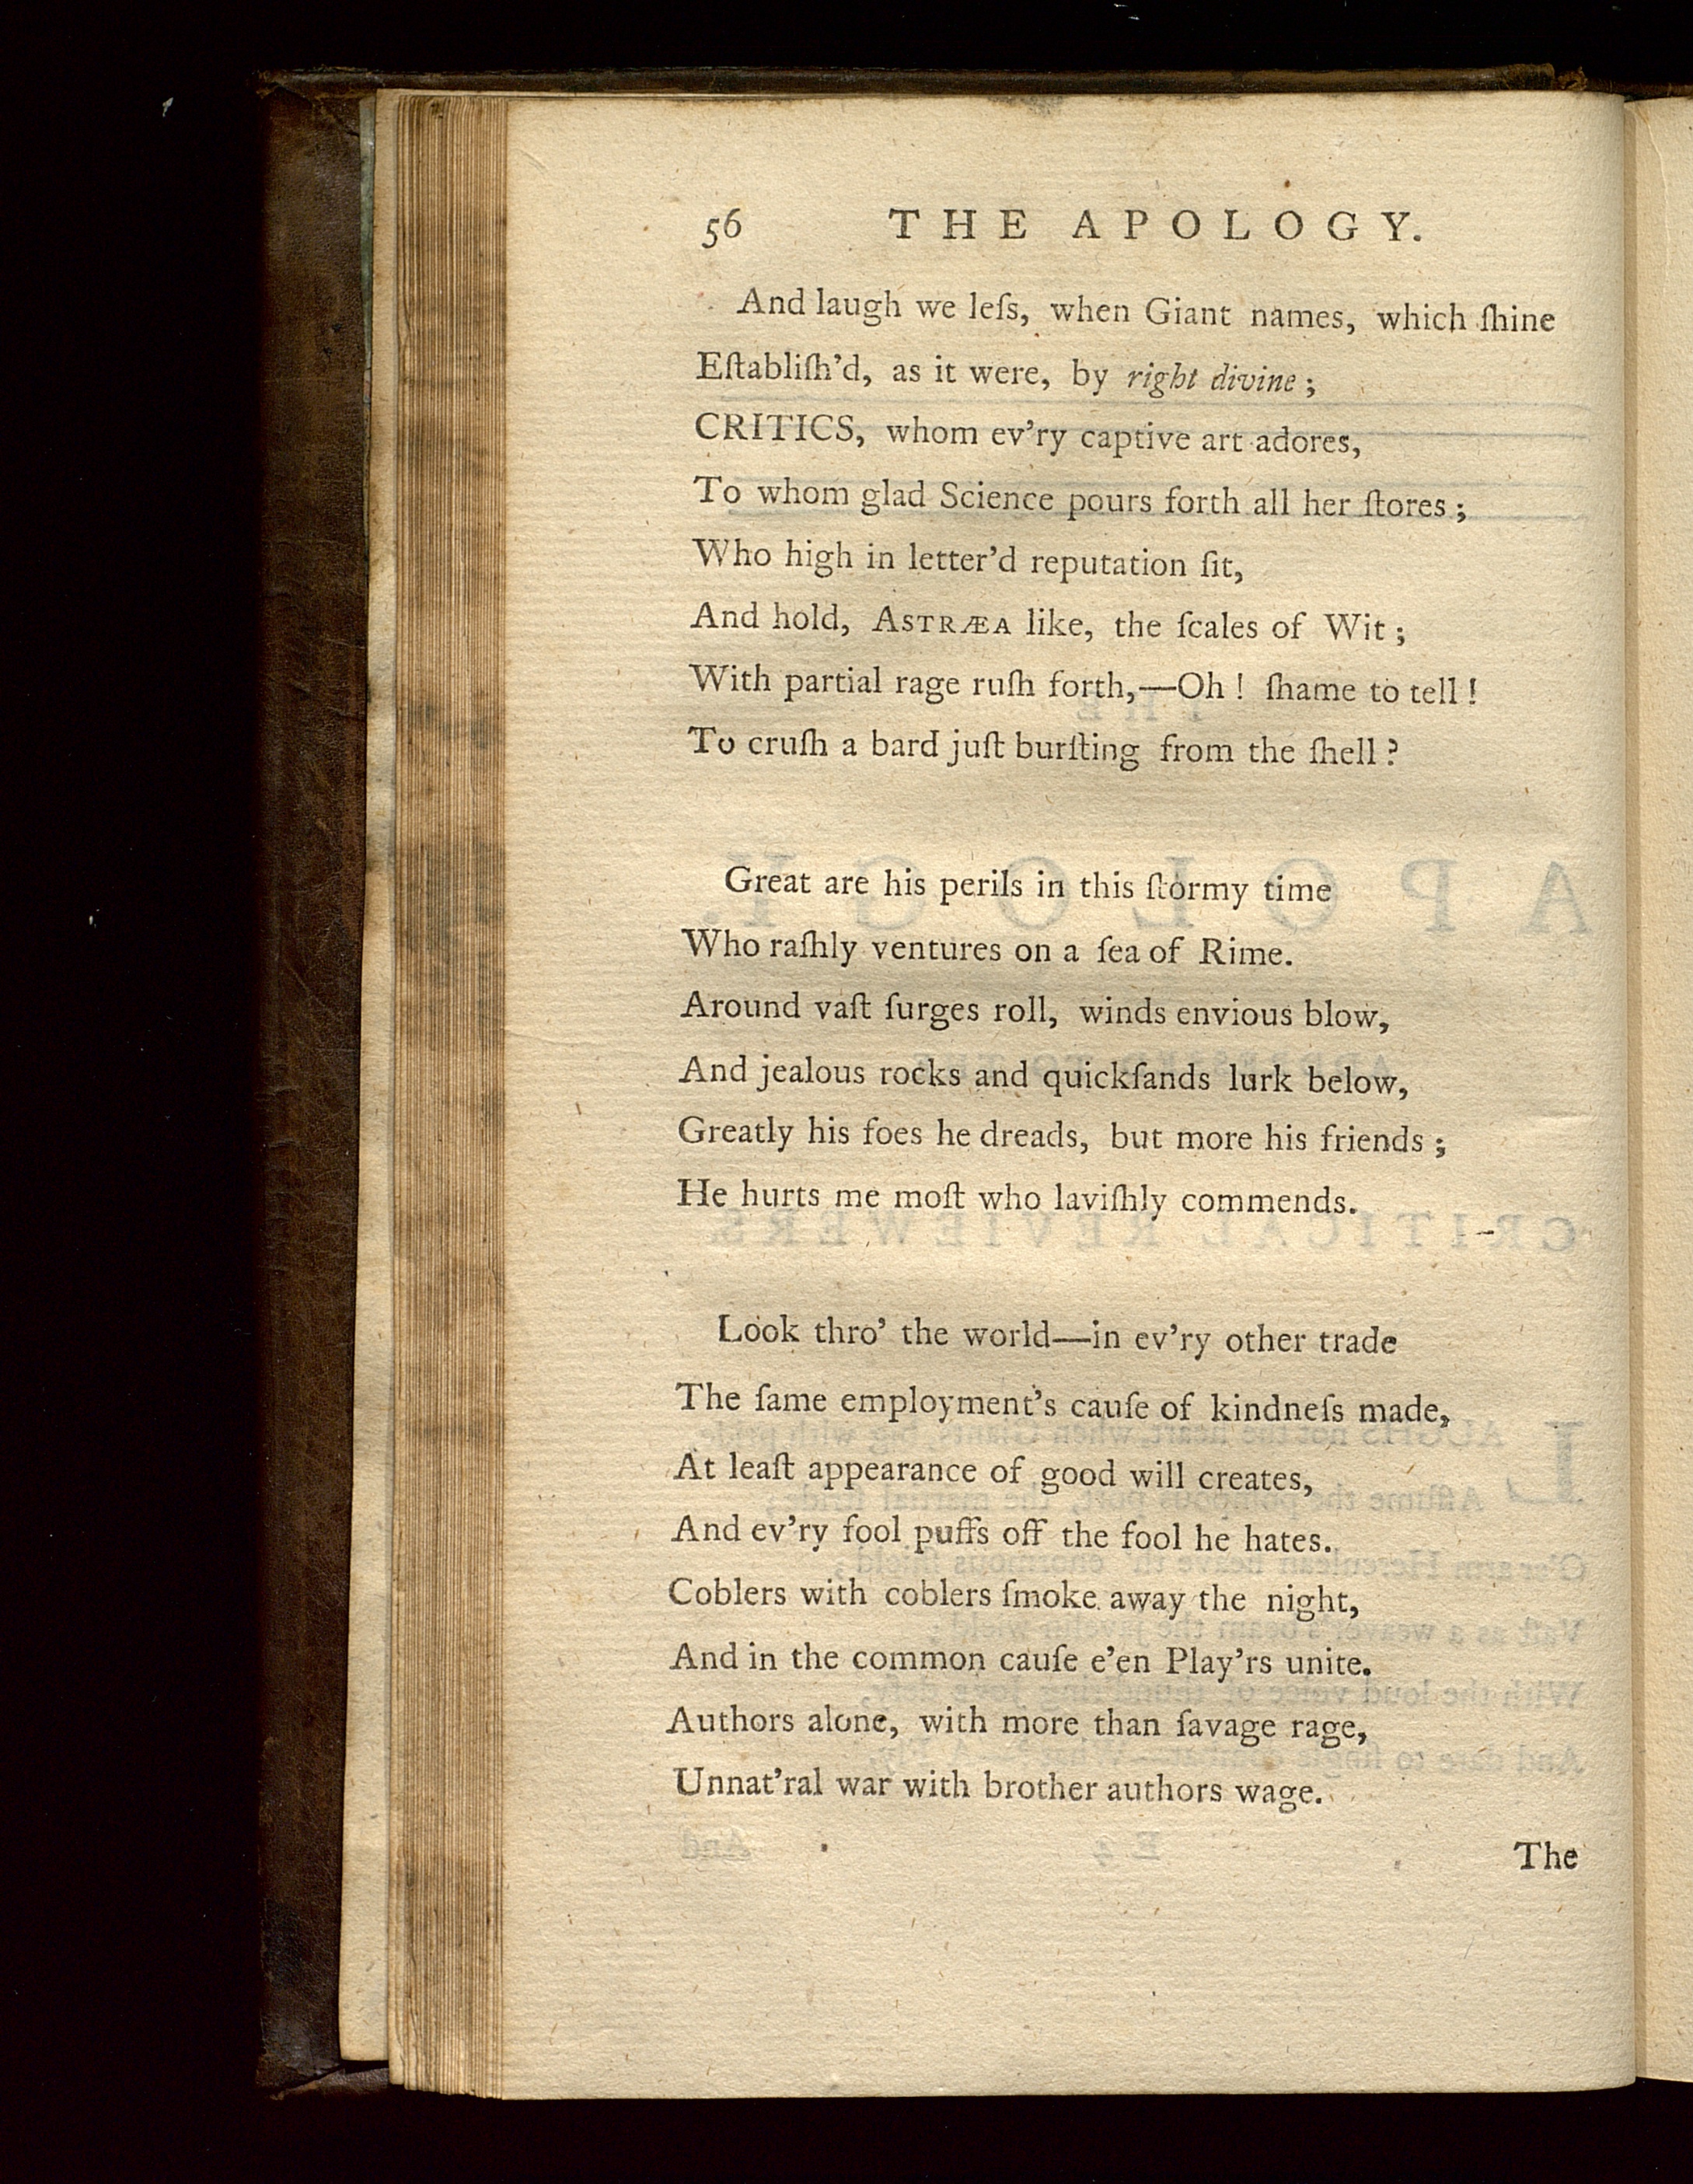 56 THE APOLOGY.
And laugh we leſs, when Giant names, which ſhine
Eſtabliſh'd, as it were, by right divine ;
CRITICS, whom ev'ry captive art adores,
To whom glad Science pours forth all her ſtores ;
Who high in letter'd reputation ſit,
And hold, ASTRÆA like, the ſcales of Wit ;
With partial rage ruſh forth,—Oh ! ſhame to tell !
To cruſh a bard juſt burſting from the ſhell ?
Great are his perils in this ſtormy time
Who raſhly ventures on a ſea of Rime.
Around vaſt ſurges roll, winds envious blow,
And jealous rocks and quickſands lurk below,
Greatly his foes he dreads, but more his friends ;
He hurts me moſt who laviſhly commends.
Look thro' the world—in ev'ry other trade
The ſame employment's cauſe of kindneſs made,
At leaſt appearance of good will creates,
And ev'ry fool puffs off the fool he hates.
Coblers with coblers ſmoke away the night,
And in the common cauſe e'en Play'rs unite.
Authors alone, with more than ſavage rage,
Unnat'ral war with brother authors wage.
The